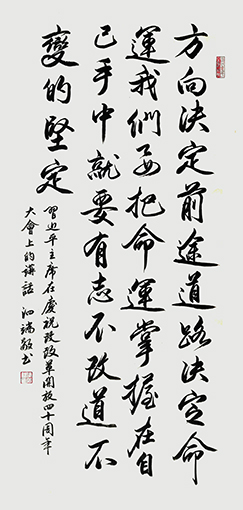 方向決定前途道路決定命
運我們要把命運掌握在自
己手中就要有志不改道不
變的堅定
習近平主席在慶祝改革開放四十周年
大會上的講話